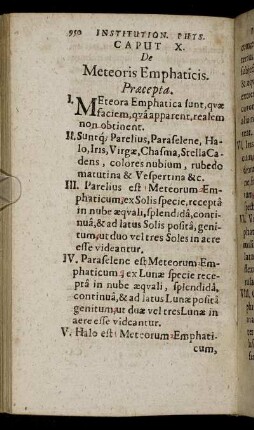 950 INSTITUTION. PHYS.
CAPUT X.
De
Meteoris Emphaticis.
Præcepta.
I. MEteora Emphatica sunt, quæ
faciem, quâ apparent, realem
non obtinent.
II. Suntq́; Parelius, Paraselene, Ha-
lo, Iris, Virgæ, Chasma, Stella Ca-
dens, colores nubium, rubedo
matutina & Vespertina &c.
III. Parelius est Meteorum Em-
phaticum; ex Solis specie, receptâ
in nube æquali, splendidâ, conti-
nuâ, & ad latus Solis positâ, geni-
tum, ut duo vel tres Soles in aere
esse videantur.
IV. Paraselene est Meteorum Em-
phaticum; ex Lunæ specie rece-
ptâ in nube æquali, splendidâ,
continuâ, & ad latus Lunæ positâ
genitum, ut duæ vel tres Lunæ in
aere esse videantur.
V. Halo est Meteorum Emphati-
cum,